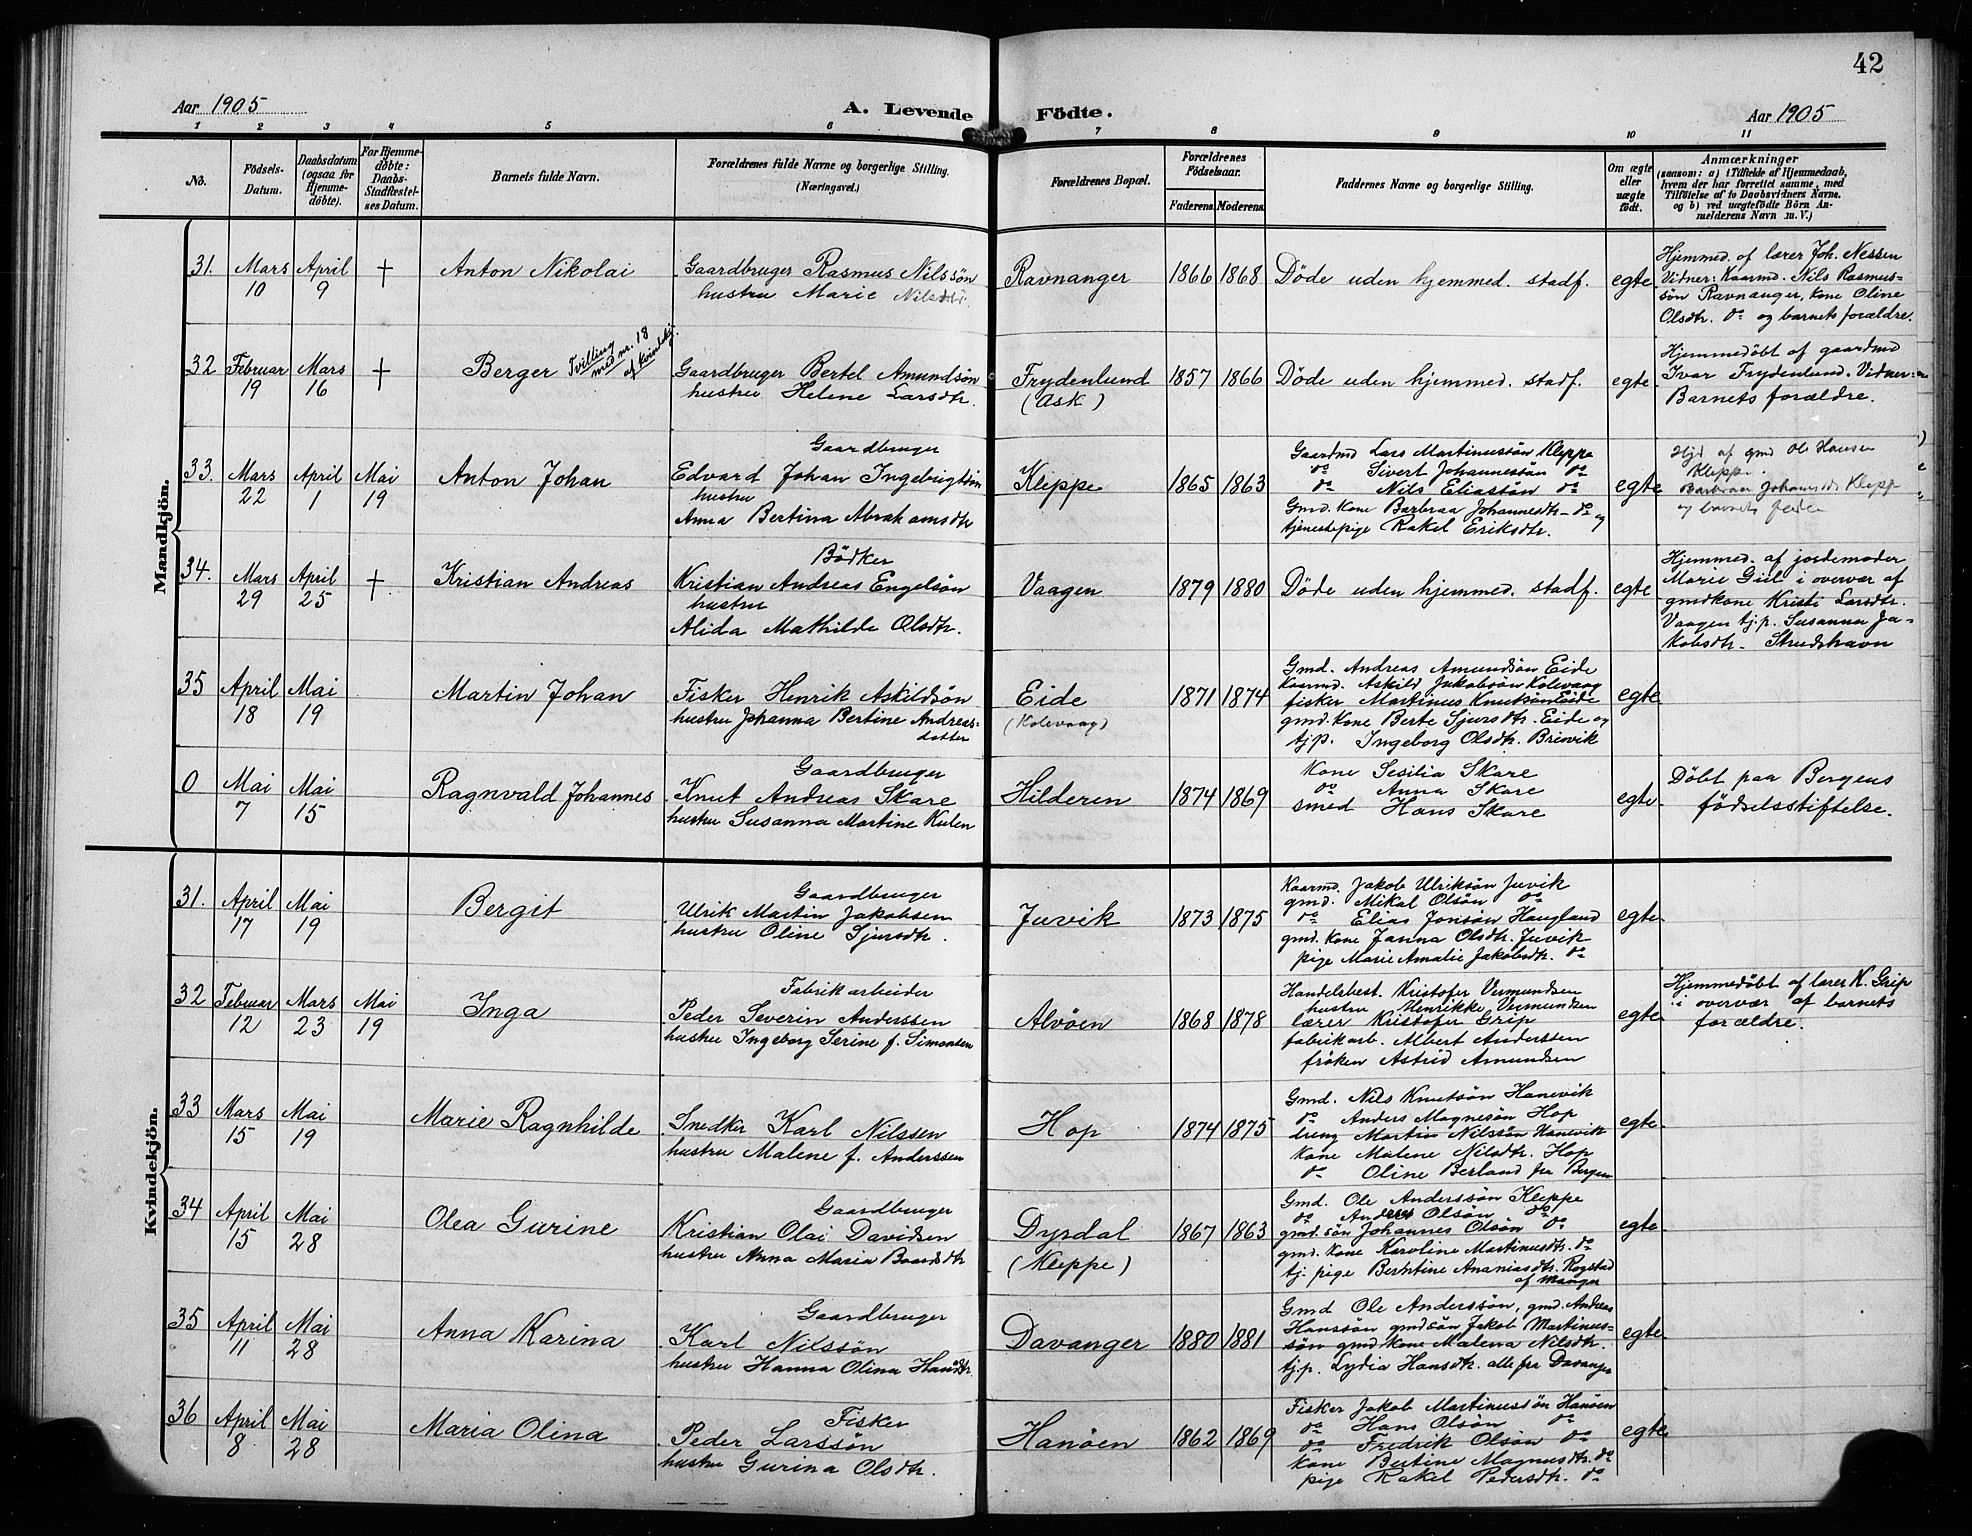 42
Aar 1905
A. Levende Födte.
Aar 1905
1 2 3 4 5 6 7 8 9 10 11
No.
Födsels-Datum.
Daabsdatum (ogsaa for Hjemmedöbte).
For Hjemmedöbte: Daabs-Stadfæstelses Datum.
Barnets fulde Navn.
Forældrenes fulde Navne og borgerlige Stilling.
(Næringsvei.)
Forældrenes Bopæl.
Forældrenes Födselsaar.
Faderens. Moderens.
Faddernes Navne og borgerlige Stilling.
Om ægte eller uægte födt.
Anmærkninger
(saasom: a) i Tilfælde af Hjemmedaab, hvem der har forrettet samme, med Tilföielse af to Daabsvidners Navne. og b) ved uægtefödte Börn Anmelderens Navn m. V.)
Mandkjön.
31. Mars 10 April 9 † Anton Nikolai
Gaardbruger Rasmus Nilssön
hustru Marie Nilsdtr.
Ravnanger 1866 1868 Døde uden hjemmed. stadf. egte
Hjemmed. af lærer Joh. Nessen
Vidner: Kaarmd. Nils Rasmus-
sön Ravnanger, kone Oline
Olsdtr. do og barnets forældre.
32 Februar 19 Mars 16 † Berger
Tvilling
med nr. 18
af kvindekj.
Gaardbruger Bertel Amundsön
hustru Helene Larsdtr.
Frydenlund
(Ask)
1857 1866 Døde uden hjemmed. stadf. egte
Hjemmedöbt af gaardmd
Ivar Frydenlund. Vidner:
Barnets forældre.
33. Mars 22 April 1 Mai 19 Anton Johan
Gaardbruger
Edvard Johan Ingebrigtsön
hustru
Anna Bertina Abrahamsdtr
Kleppe 1865 1863
Gaardmd Lars Martinussön Kleppe
do Sivert Johannessön do
do Nils Eliassön do
Gmd. kone Barbraa Johannesdtr. do og
tjenestepige Rakel Eriksdtr.
egte
Hjd af gmd Ole Hansen
Klepp.
Barbraa Johansdtr Klepp
og barnets fader
34. Mars 29 April 25 † Kristian Andreas
Bödker
Kristian Andreas Engelsön
hustru
Alida Mathilde Olsdtr.
Vaagen 1879 1880 Døde uden hjemmed. stadf. egte
Hjemmed. af jordemoder
Marie Giil i overvær af
gmdkone Kristi Larsdtr.
Vaagen tj.p. Susanna Ja-
kobsdtr. Strudshavn
35 April 18 Mai 19 Martin Johan
Fisker Henrik Askildsön
hustru Johanna Bertine Andreas-
datter
Eide
(Kolevaag)
1871 1874
Gmd. Andreas Amundsön Eide
Kaarmd. Askild Jakobsön Kolevaag
fisker Martinus Knutsön Eide
gmd. kone Berte Sjursdtr. Eide og
tj.p. Ingeborg Olsdtr. Breivik
egte
0 Mai 7 Mai 15 Ragnvald Johannes
Gaardbruger
Knut Andreas Skare
hustru Susanna Martine Kulen
Hilderen 1874 1869
Kone Sesilia Skare
do Anna Skare
smed Hans Skare
egte
Döbt paa Bergens
födselsstiftelse.
Kvindekjön.
31. April 17 Mai 19 Bergit
Gaardbruger
Ulrik Martin Jakobsen
hustru Oline Sjursdtr.
Juvik 1873 1875
Kaarmd. Jakob Ulriksön Juvik
gmd. Mikal Olsön do
do Elias Jonsön Haugland
gmd. kone Janna Olsdtr. Juvik
pige Marie Amalie Jakobsdtr. do
egte
32 Februar 12 Mars 23 Mai 19 Inga
Fabrikarbeider
Peder Severin Anderssen
hustru Ingeborg Serine f. Simonsen
Alvöen 1868 1878
Handelsbest. Kristofer Vermundsen
hustru Henrikke Vermundsen
lærer Kristofer Grip
fabrikarb. Albert Anderssen
fröken Astrid Amundsen
egte
Hjemmedöbt af lærer K. Grip
i overvær af barnets
forældre.
33 Mars 15 Mai 19 Marie Ragnhilde
Snedker Karl Nilssen
hustru Malene f. Anderssen
Hop 1874 1875
Gmd. Nils Knutsön Hanevik
do Anders Magnesön Hop
dreng Martin Nilssön Hanevik
Kone Malene Nilsdtr. Hop
do Oline Berland fra Bergen
egte
34 April 15 Mai 28 Olea Gurine
Gaardbruger
Kristian Olai Davidsen
hustru Anna Maria Baardsdtr
Dyrdal
(Kleppe)
1867 1863
Gmd. Ole Anderssön Kleppe
do Anders Olsön do
gmd. sön Johannes Olsön do
gmd. kone Karoline Martinusdtr. do
tj. pige Berntine Ananiasdtr. Rogstad
af Manger
egte
35 April 11 Mai 28 Anna Karina
Gaardbruger
Karl Nilssön
hustru Hanna Olina Hansdtr.
Davanger 1880 1881
Gmd Ole Anderssön, gmd. Andreas
Hanssön gmdsön Jakob Martinus-
sön gmdkone Malena Nilsdtr.
tj.p. Lydia Hansdtr. alle fra Davanger
egte
36 April 8 Mai 28 Maria Olina
Fisker
Peder Larssön
hustru Gurina Olsdtr.
Hanöen 1862 1869
Fisker Jakob Martinussön Hanöen
do Hans Olsön do
do Fredrik Olsön do
kone Bertine Magnusdtr. do
pige Rakel Pedersdtr. do
egte